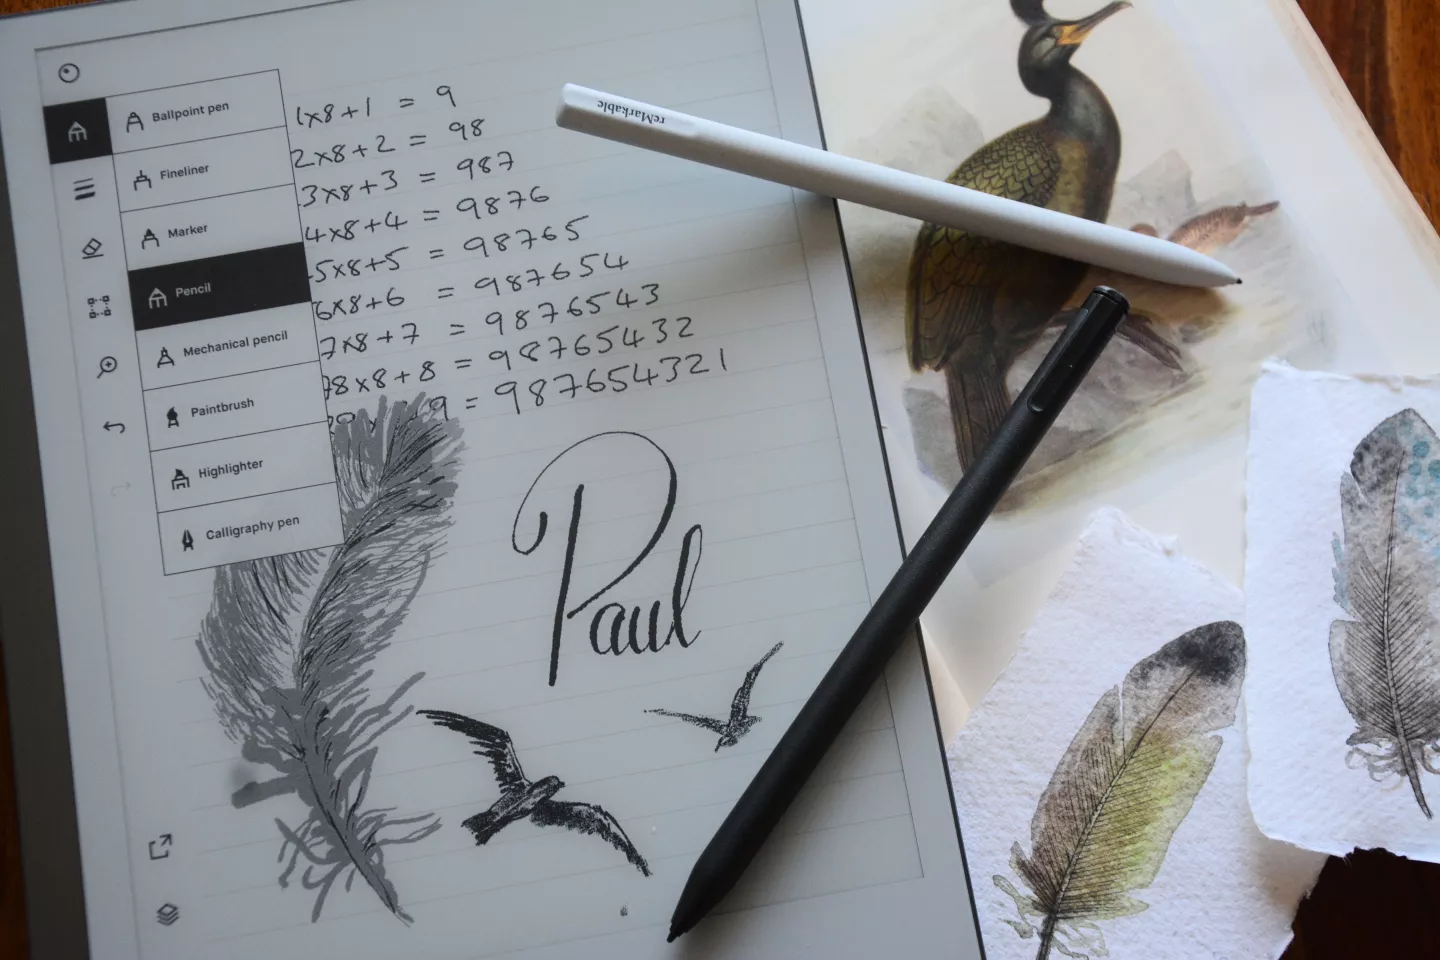 Ballpoint pen
Fineliner
Marker
Pencil
Mechanical pencil
Paintbrush
Highlighter
Calligraphy pen
1x8+1 = 9
2x8+2 = 98
3x8+3 = 987
4x8+4 = 9876
5x8+5 = 98765
6x8+6 = 987654
7x8+7 = 9876543
8x8+8 = 98765432
9 = 987654321
Paul
reMarkable